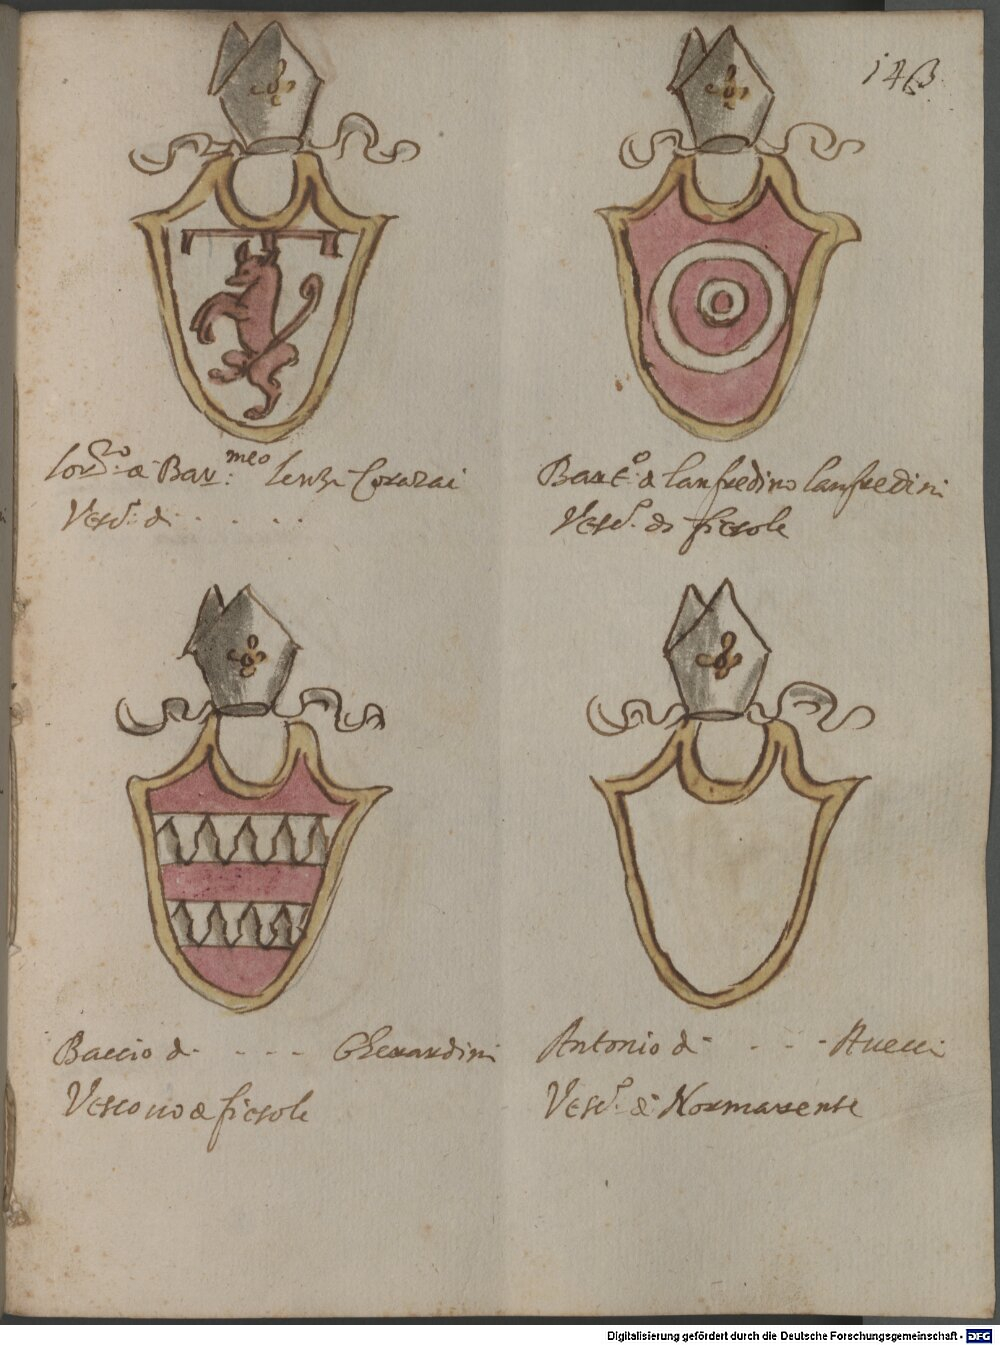 143
Lor.zo di Bar.meo Lenzi Corazai
Vesc.o di . . . .
Bart.o di Lanfredino Lanfredini
Vesc.o di fiesole
Baccio di - - - - Gherardini
Vescouo di fiesole
Antonio di - - - - Auecci
Vesc.o di Normarente
Digitalisierung gefördert durch die Deutsche Forschungsgemeinschaft - DFG